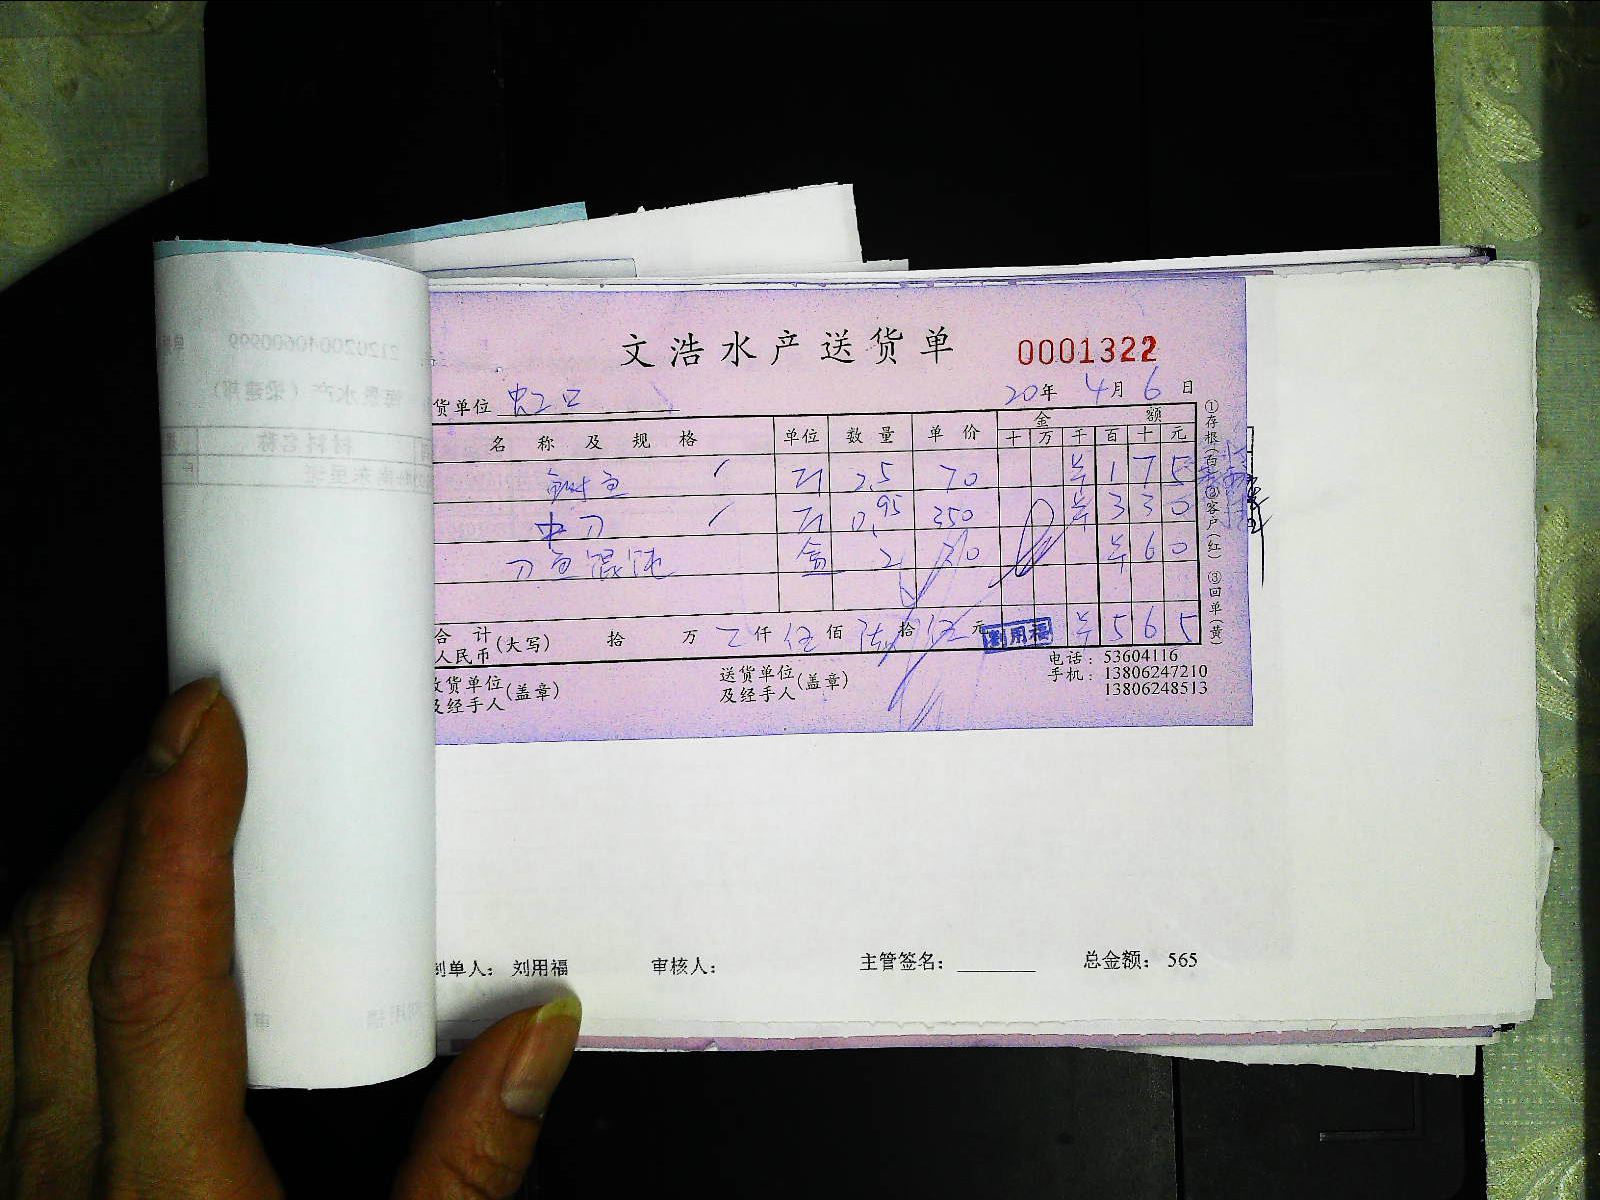 文浩水产送货单 0001322
20年 4月 6日
货单位 虹口
名称及规格 单位 数量 单价 金额
十 万 千 百 十 元
鲥鱼 斤 2.5 70 ¥ 1 7 5
中刀 斤 0.95 350 ¥ 3 3 0
刀鱼馄饨 盒 2 30 ¥ 6 0
合计 人民币 (大写) 拾 万 仟 伍 佰 陆 拾 伍 元 ¥ 5 6 5
刘用福
收货单位及经手人 (盖章) 送货单位及经手人 (盖章)
电话: 53604116
手机: 13806247210
13806248513
①存根(白) ②客户(红) ③回单(黄)
制单人: 刘用福 审核人: 主管签名: 总金额: 565
212020040600999
海景水产(梁建邦)
材料名称